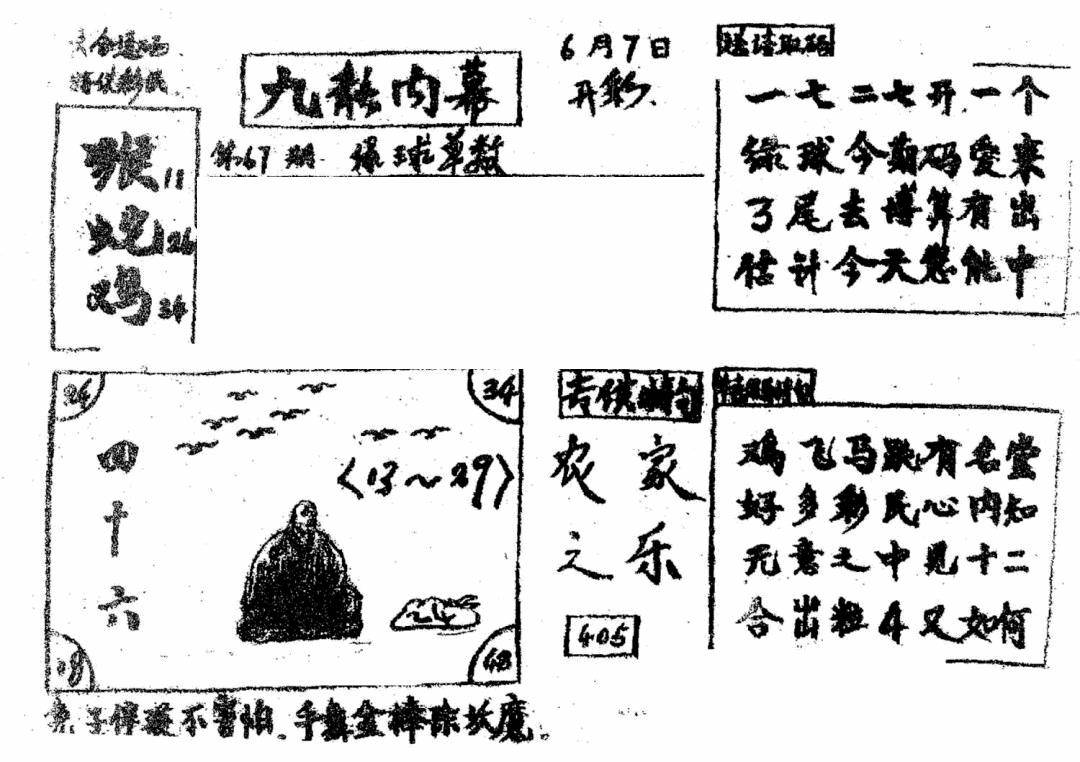 六合透码
好供彩民
猴11
蛇26
鸡34
九龙内幕
第67期 绿球单数
6月7日
开彩
送诗取码
一七二七开一个
绿球今期码爱寨
了尾去博算有出
估计今天您能中
26
34
四十六
〈13~29〉
18
48
停疑不害怕、手舞金棒除妖魔。
农家
之乐
405
鸡飞马跳有名堂
好多彩民心内知
无意之中见十二
合出粒4又如何